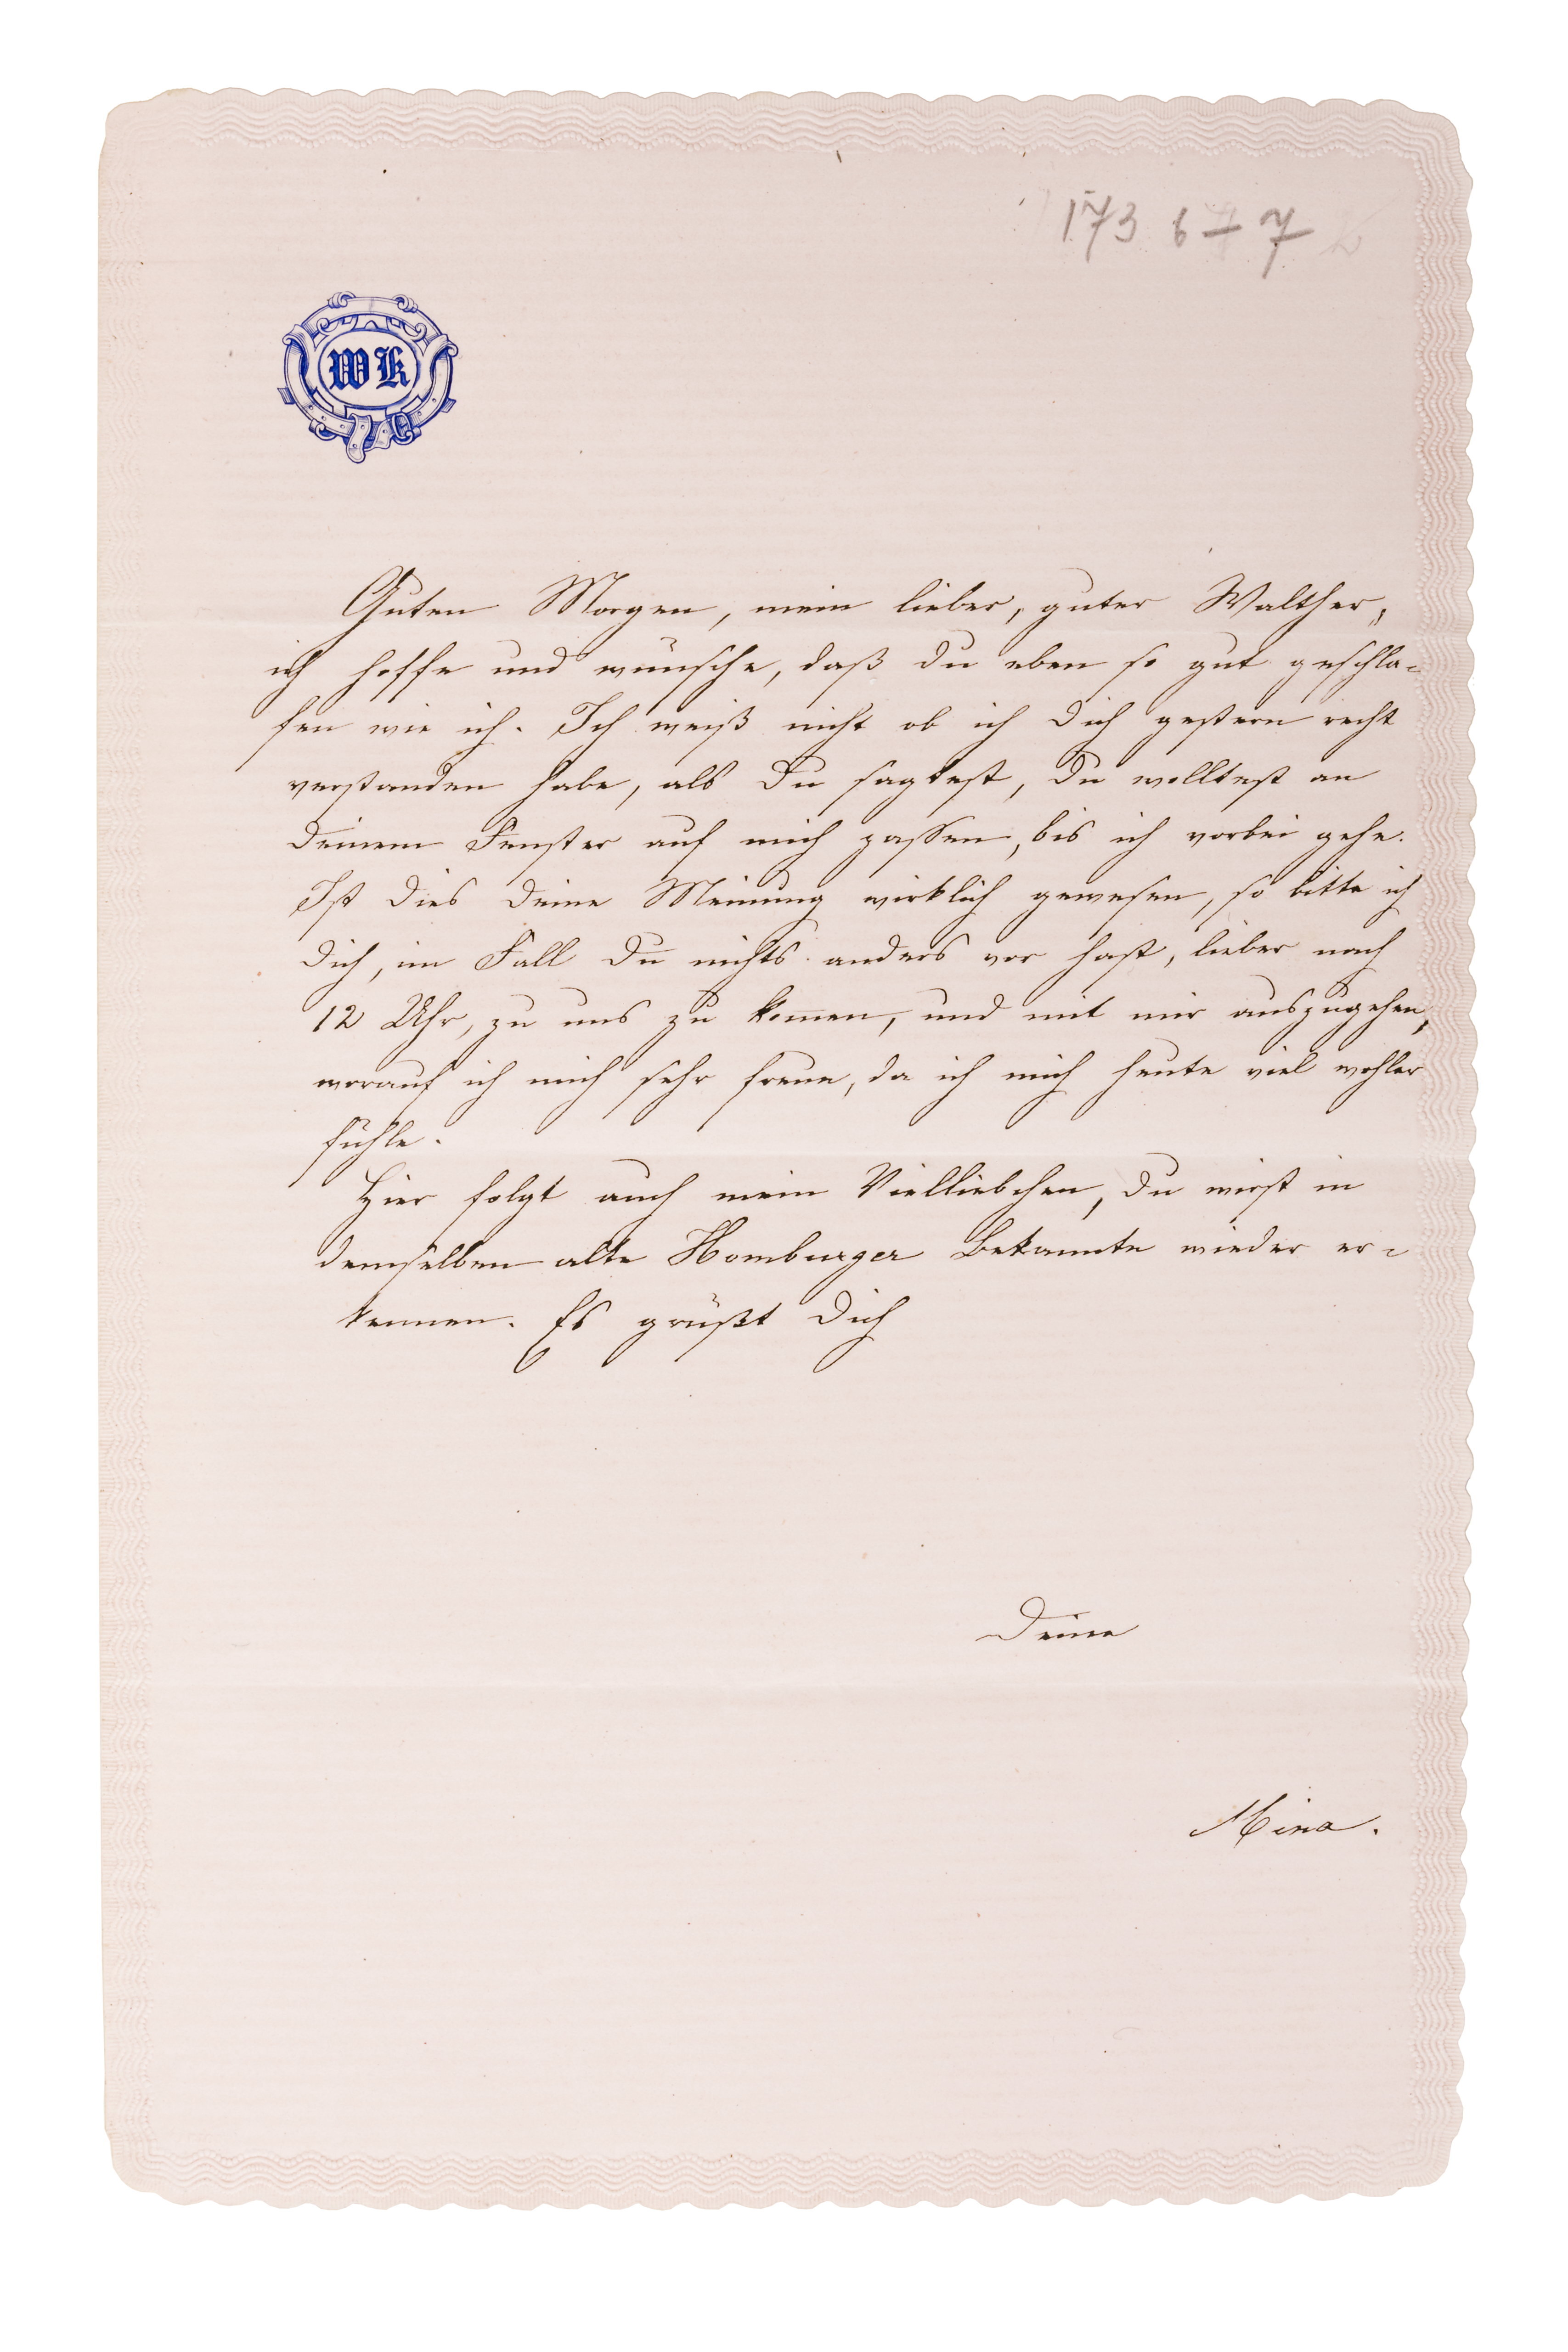 173 6 7
WK
Guten Morgen, mein lieber, guter Walther,
ich hoffe und wünsche, daß Du eben so gut geschla-
fen wie ich. Ich weiß nicht ob ich Dich gestern recht
verstanden habe, als Du sagtest, Du wolltest an
Deinem Fenster auf mich passen, bis ich vorbei gehe.
Ist dies Deine Meinung wirklich gewesen, so bitte ich
Dich, im Fall Du nichts anders vor hast, lieber nach
12 Uhr, zu uns zu kom̅en, und mit mir auszugehen,
worauf ich mich sehr freue, da ich mich heute viel wohler
fühle.
Hier folgt auch mein Vielliebchen, Du wirst in
demselben alte Homburger Bekannte wieder er-
kennen. Es grüßt Dich
Deine
Mina.